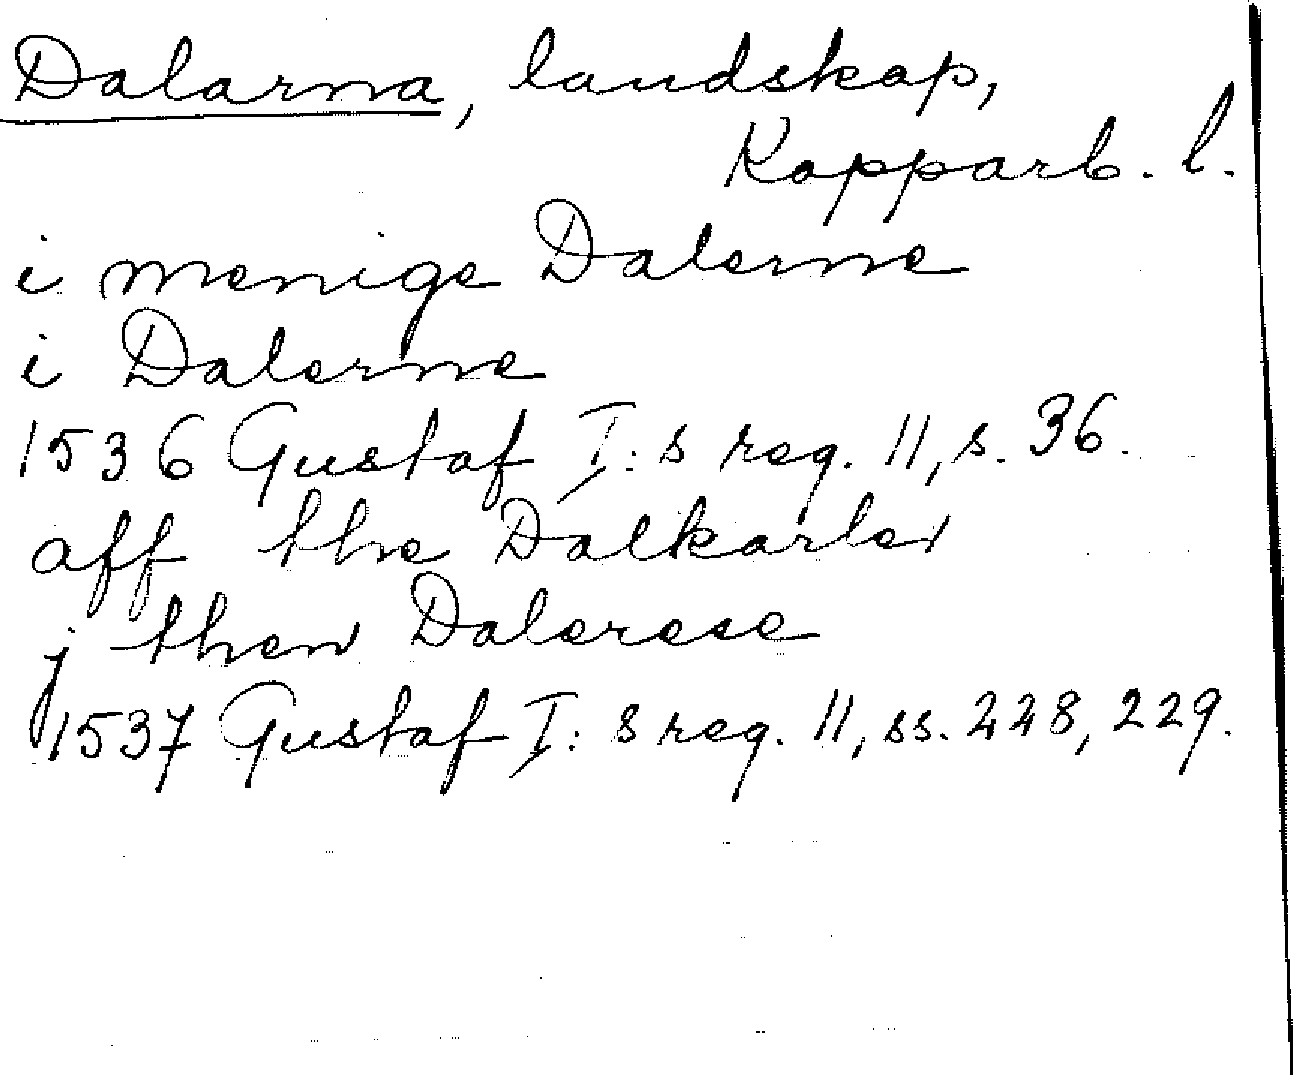 Dalarna, landskap,
Kopparb. l.
i menige Dalerne
i Dalerne
1536 Gustaf I: s reg. 11, s. 36.
aff the Dalkarler
j then Dalerese
1537 Gustaf I: s reg. 11, ss. 228, 229.